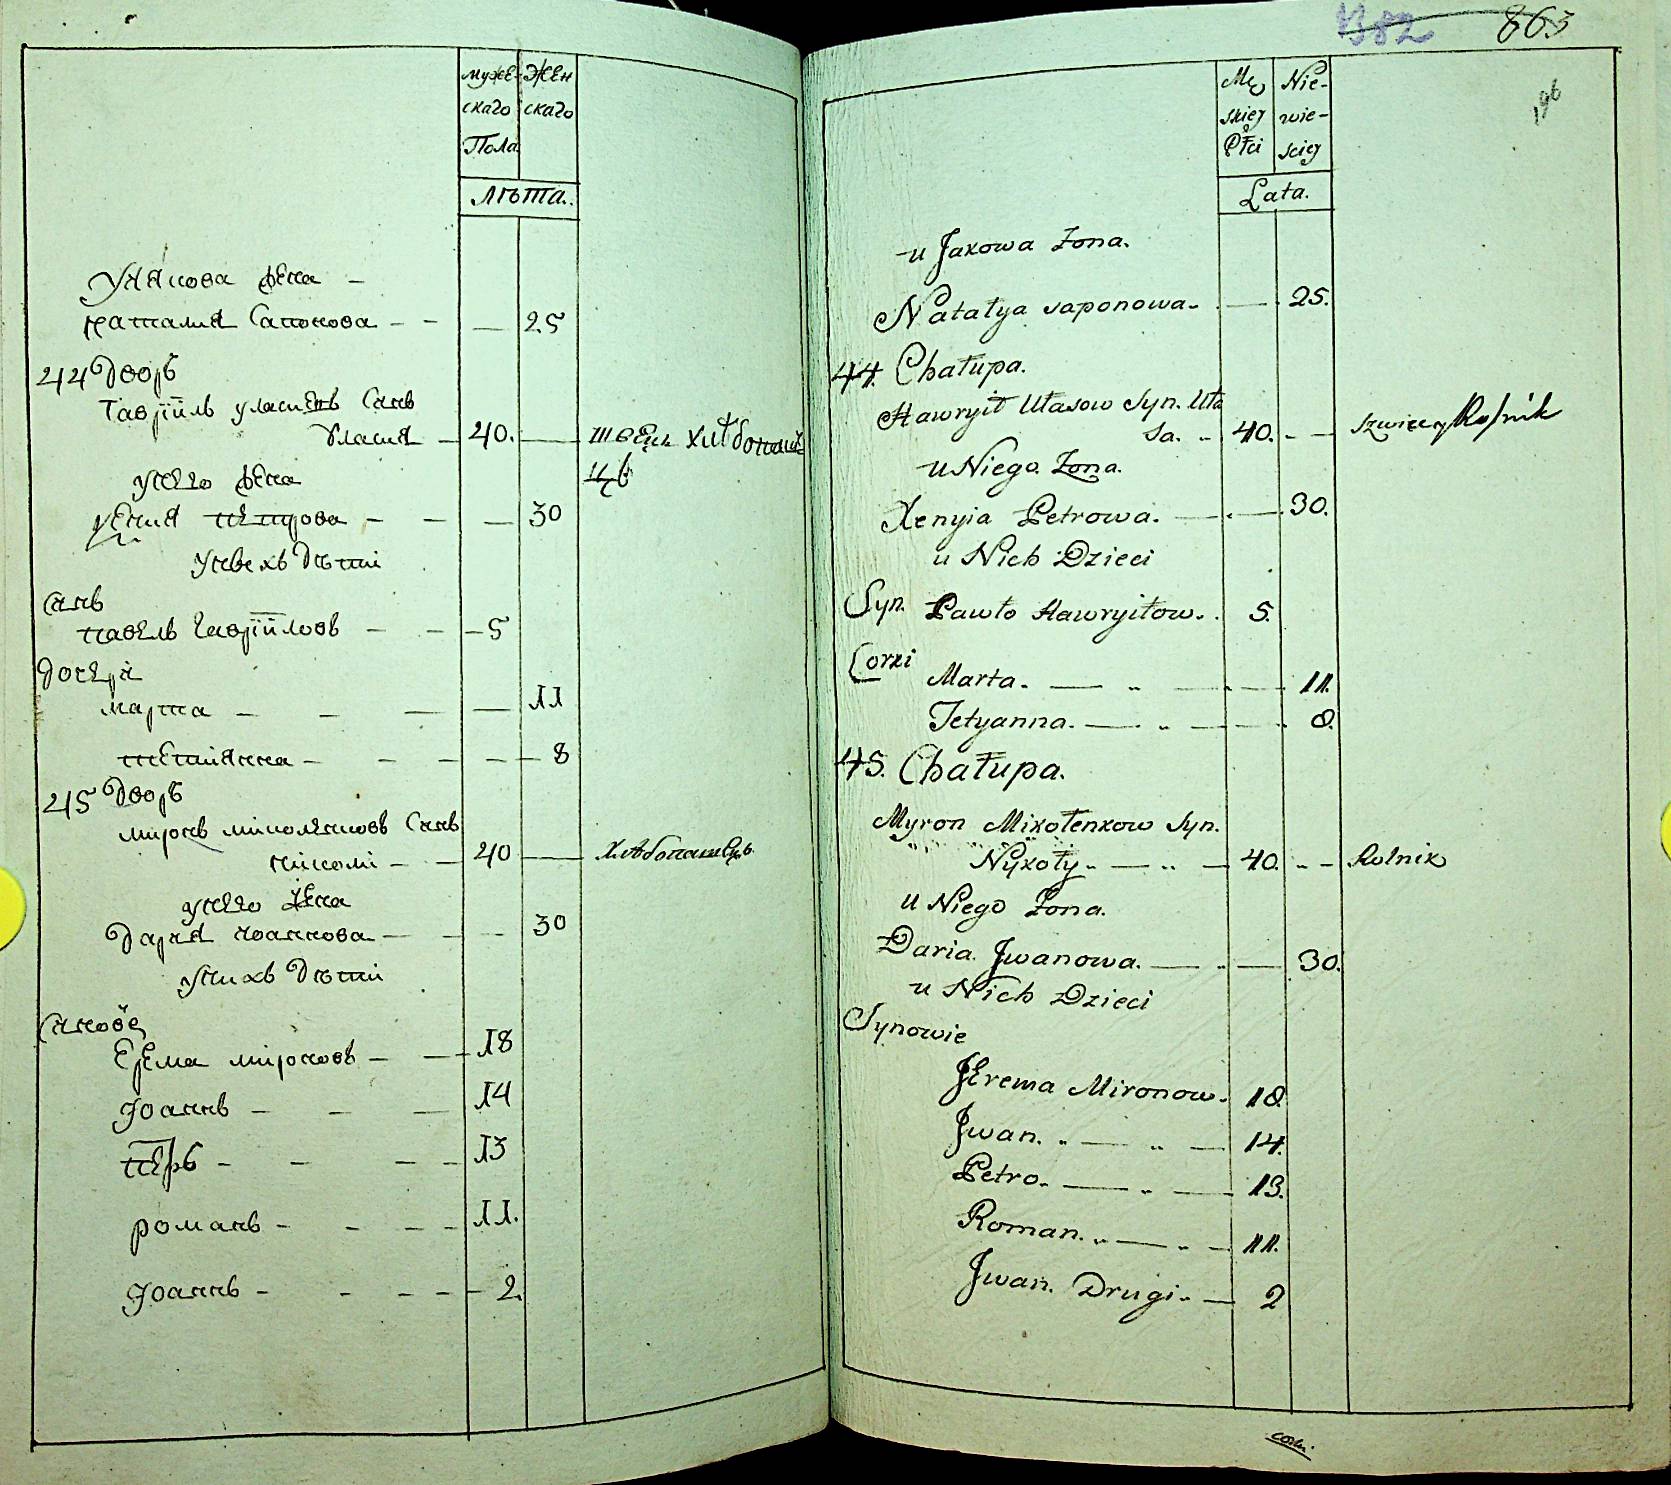 муже-
скаго
Пола
Жен
скаго
Лѣта.
У Якова жена —
наталия Сапонова — — — 25
44 Дворъ
Гавріилъ уласивъ Синъ
Уласия — 40. — швецъ хлѣбопаше
цъ
унего жена
ксения петрова — — — 30
унвехъ Дѣти
Синъ
павелъ Гавріиловъ — — — 5
Дочери
марта — — — — 11
тетіянна — — — — — 8
45 Дворъ
миронъ миколенковъ Синъ
николи — — 40 — Хлѣбопашецъ
унего жена
Дария иоаннова — — — 30
унихъ Дѣти
Синове
Ерема міроновъ — — 18
Иоаннъ — — — 14
петръ — — — — 13
романъ — — — — 11.
Иоаннъ — — — — — 2.
1382 863
196
Mę
skiey
Płci
Nie-
wie-
sciey
Lata.
u Jakowa Żona.
Natałya saponowa. — 25.
44. Chałupa.
Hawryił Ułasow Syn. Uła
sa. 40. — szwiecy Rolnik
u Niego Żona.
Xenyia Petrowa. — — 30.
u Nich Dzieci
Syn. Pawło Hawryiłow. 5.
Corki
Marta. — „ — — 11.
Tetyanna. — „ — — 8.
45. Chałupa.
Myron Mikołenkow Syn.
Nykoły. — „ — 40. — Rolnik
u Niego Żona.
Daria Jwanowa. — „ — 30.
u Nich Dzieci
Synowie
Jerema Mironow. 18
Jwan. „ — „ — 14.
Petro. — „ — 13.
Roman. „ — „ — 11.
Jwan. Drugi. — 2
corki.